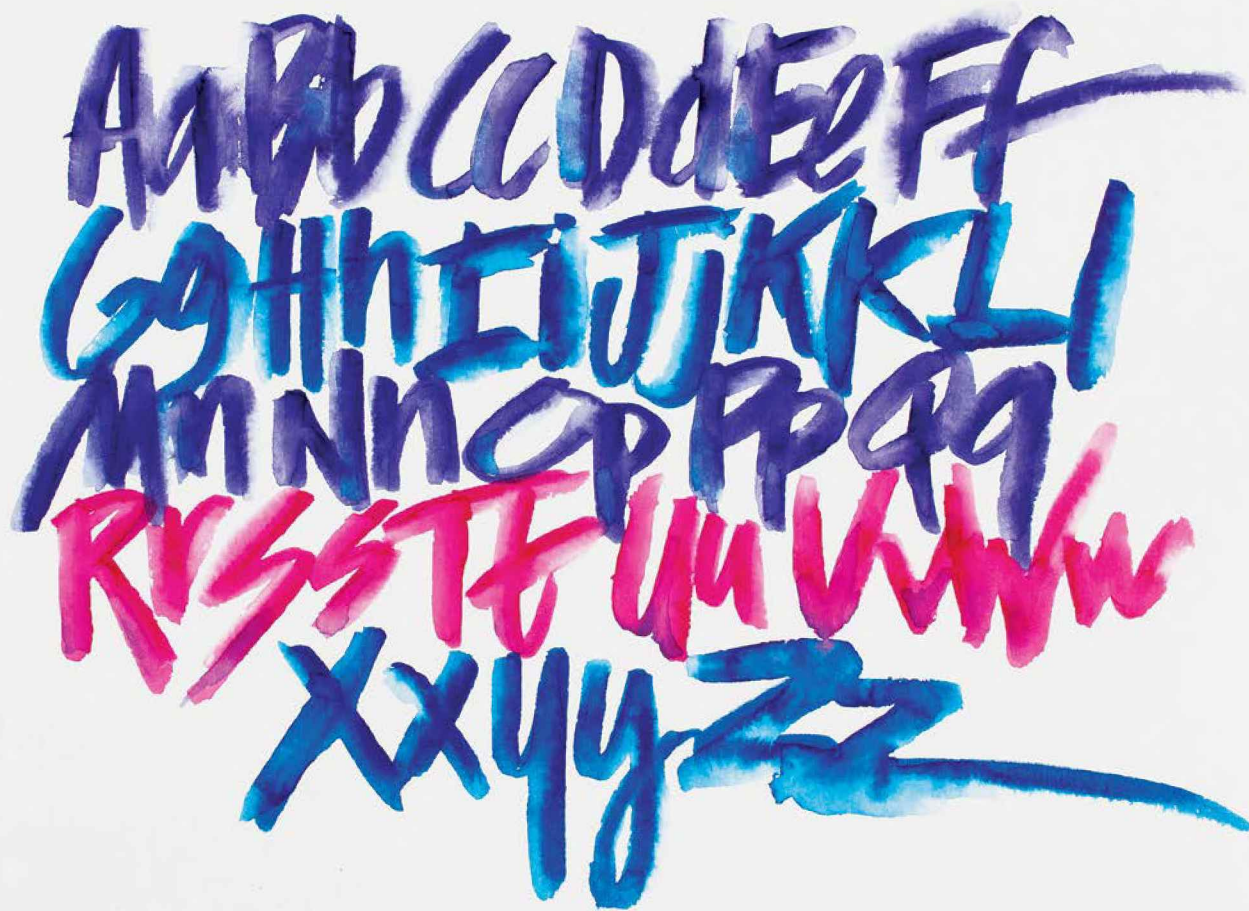 AaBbCcDdEeFf
GgHhIiJjKkLl
MnNnOpPpQq
RrSsTtUuVvWw
XxYyZz